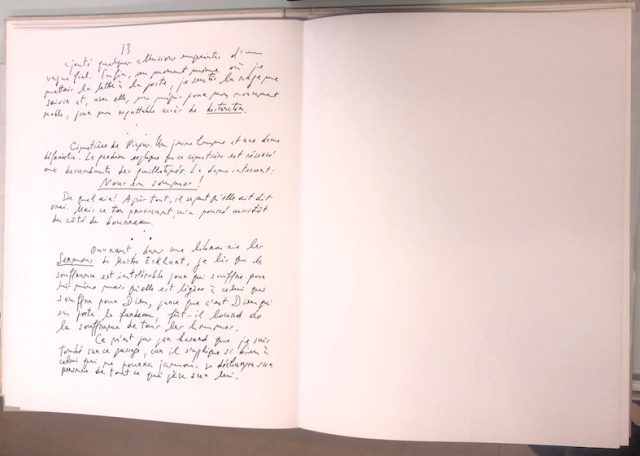 13
ajouté quelques allusions empreintes d'un
vague fiel. Enfin, au moment même où je
mettais la lettre à la poste, je sentis la rage me
saisir et, avec elle, un mépris pour mon mouvement
noble, pour mon regrettable accès de distinction.
Cimetière de Picpus. Un jeune homme et une dame
défraîchie. Le gardien explique que ce cimetière est réservé
aux descendants des guillotinés. La dame intervient:
Nous en sommes!
De quel air! Après tout, il se peut qu'elle ait dit
vrai. Mais ce ton provocant m'a poussé aussitôt
du côté du bourreau.
Ouvrant dans une librairie les
Sermons de Maître Eckhart, je lis que la
souffrance est intolérable pour qui souffre pour
lui-même mais qu'elle est légère à celui qui
souffre pour Dieu, parce que c'est Dieu qui
en porte le fardeau, fût-il lourd de
la souffrance de tous les hommes.
Ce n'est pas par hasard que je suis
tombé sur ce passage, car il s'applique si bien à
celui qui ne pourra jamais se décharger sur
personne de tout ce qui pèse sur lui.